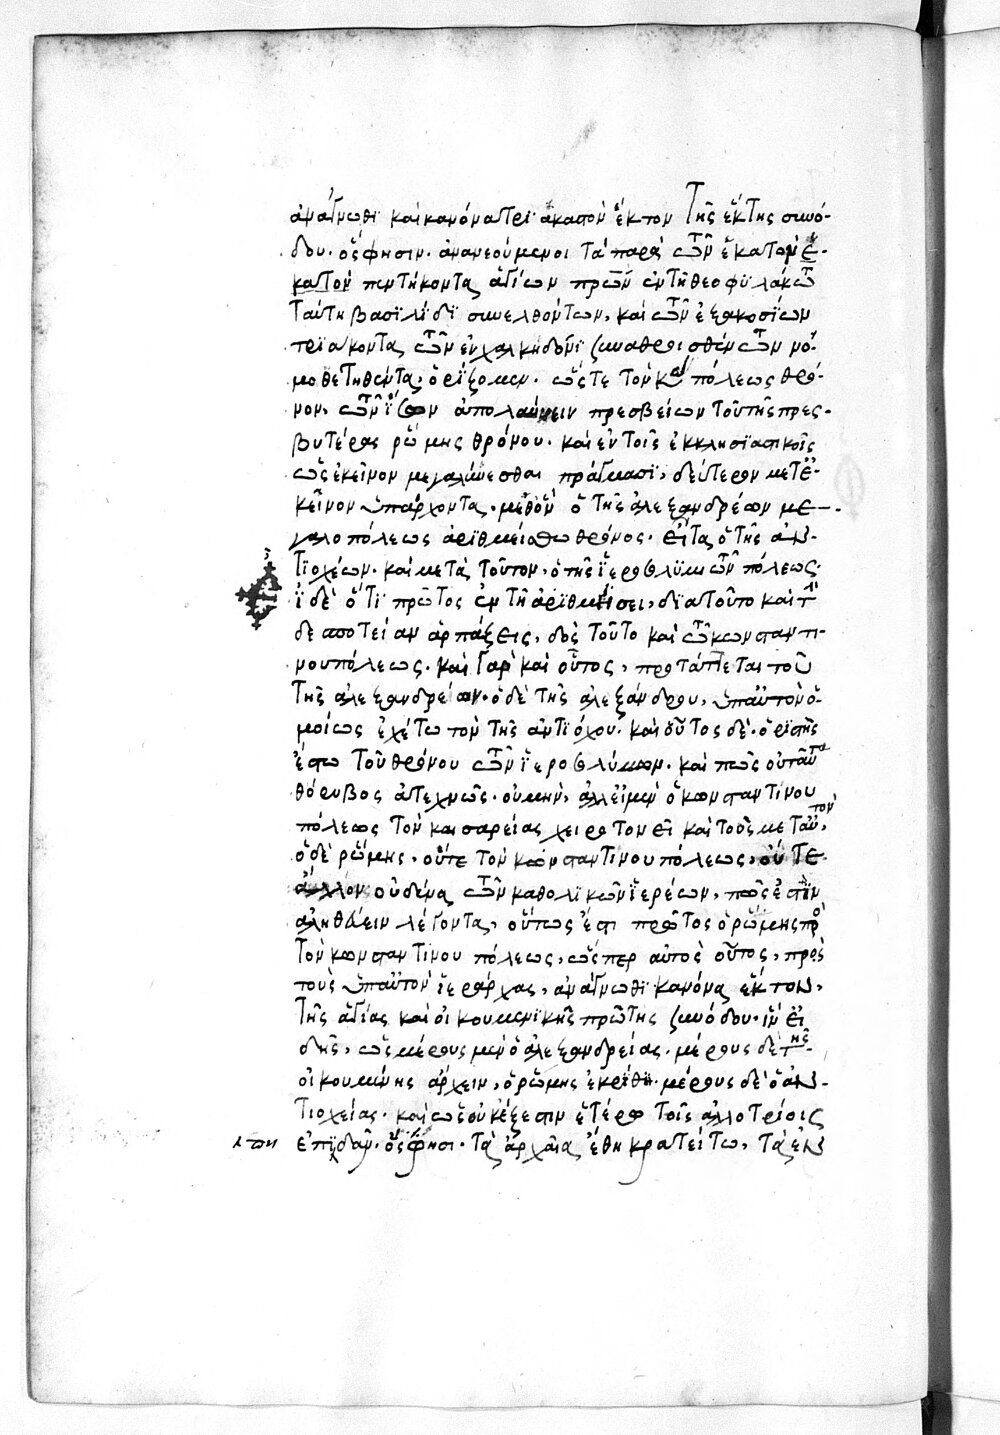 ἀνάγνωθι καὶ κανόνα τρι ακαστὸν ἕκτον τῆς ἕκτης συνό-
δου. ὅς φησιν. ἀνανεούμενοι τὰ παρὰ τῶν ἑκατὸν ἑ-
κατὸν πεντήκοντα ἁγίων πρων ἐν τῇ θεοφυλάκτω
ταύτη βασιλίδι συνελθόντων, καὶ τῶν ἑξακοσίων
τριάκοντα τῶν ἐν χαλκηδόνι συναθροισθέντων νο-
μοθετηθέντα, ὁρίζομεν. ὥστε τὸν κ πόλεως θρό-
νον, τῶν ἴσων ἀπολαύειν πρεσβείων τοῦ τῆς πρεσ-
βυτέρας ῥώμης θρόνου. καὶ ἐν τοῖς ἐκκλησιαστικοῖς
ὡς ἐκεῖνον μεγαλύνεσθαι πράγμασι, δεύτερον μετ' ἐ-
κεῖνον ὑπάρχοντα. μεθ' ὃν ὁ τῆς ἀλεξανδρέων με-
γαλοπόλεως ἀριθμείσθω θρόνος. εἶτα ὁ τῆς ἀν-
τιοχέων. καὶ μετὰ τοῦτον, ὁ τῆς ἱεροσολυμιτῶν πόλεως.
ἰδὲ ὅτι πρῶτος ἐν τῇ ἀριθμήσει, διὰ τοῦτο καὶ
δεσποτείαν ἁρπάξεις, δὸς τοῦτο καὶ τῶ κωνσταντι-
νουπόλεως. καὶ γὰρ καὶ οὗτος, προτάττεται τοῦ
τῆς ἀλεξανδρείων. ὁ δὲ τῆς ἀλεξάνδρου, ὑπ' αὐτὸν ὁ-
μοίως ἐχέτω τὸν τῆς ἀντιόχου. καὶ οὗτος δὲ. ὁριστὴς
ἔστω τοῦ θρόνου τῶν ἱεροσολύμων. καὶ πῶς οὐ ταῦτα
θόρυβος ἀτεχνῶς. οὐ μὴν, ἀλλ' εἰ μὲν ὁ κωνσταντίνου
πόλεως τὸν καισαρείας χειροτονεῖ καὶ τοὺς μετ' αὐτὸν,
ὁ δὲ ῥώμης, οὔτε τὸν κωνσταντίνου πόλεως, οὔτε
ἄλλον οὐδένα τῶν καθολικῶν ἱερέων, πῶς ἐστὶν
ἀληθεύειν λέγοντα, οὕτως ἔστι πρῶτος ὁ ῥώμης πρὸς
τὸν κωνσταντίνου πόλεως, ὥσπερ αὐτὸς οὗτος, πρὸς
τοὺς ὑπ' αὐτὸν ἱεράρχας, ἀνάγνωθι κανόνα ἕκτον,
τῆς ἁγίας καὶ οἰκουμενικῆς πρώτης συνόδου. ἵν' εἰ
δῆς, ὡς μέρους μὲν ὁ ἀλεξανδρείας. μέρους δὲ τῆς
οἰκουμένης ἄρχειν, ὁ ῥώμης ἐκρίθη. μέρους δὲ ὁ ἀν-
τιοχείας. καὶ ὡς οὐκ ἔξεστιν ἑτέρω τοῖς ἀλλοτρίοις
ἐπιδᾶν. ὅς φησι. τὰ ἀρχαῖα ἔθη κρατείτω, τὰ ἐν